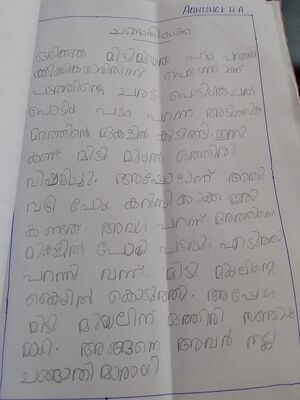 ABHISHEK H A
ചങ്ങാതികാക്ക
ഒരിക്കൽ മിട്ടിമുയൽ പട്ടം പറത്തി
കളിക്കുകയായിരുന്നു പെട്ടന്നാണ്
പട്ടത്തിന്റെ ചരട് പൊട്ടിയത്. ചരട്
പൊട്ടിയ പട്ടം പറന്ന് അടുത്തുള്ള
മരത്തിന്റെ മുകളിൽ കുടുങ്ങി. ഇത്
കണ്ട് മിട്ടി മുയൽ ഒത്തിരി
വിഷമിച്ചു. അപ്പോളാണ് അതു
വഴി പോയ കറമ്പിക്കാക്ക ഇത്
കണ്ടത്. അവൾ പറന്ന് മരത്തിന്റെ
മുകളിൽ പോയി പട്ടവും എടുത്ത്
പറന്നു വന്ന് മിട്ടി മുയലിന്റെ
കൈയിൽ കൊടുത്തു. അപ്പോൾ
മിട്ടി മുയലിന് ഒത്തിരി സന്തോഷ
മായി. അങ്ങനെ അവർ നല്ല
ചങ്ങാതിമാരായി